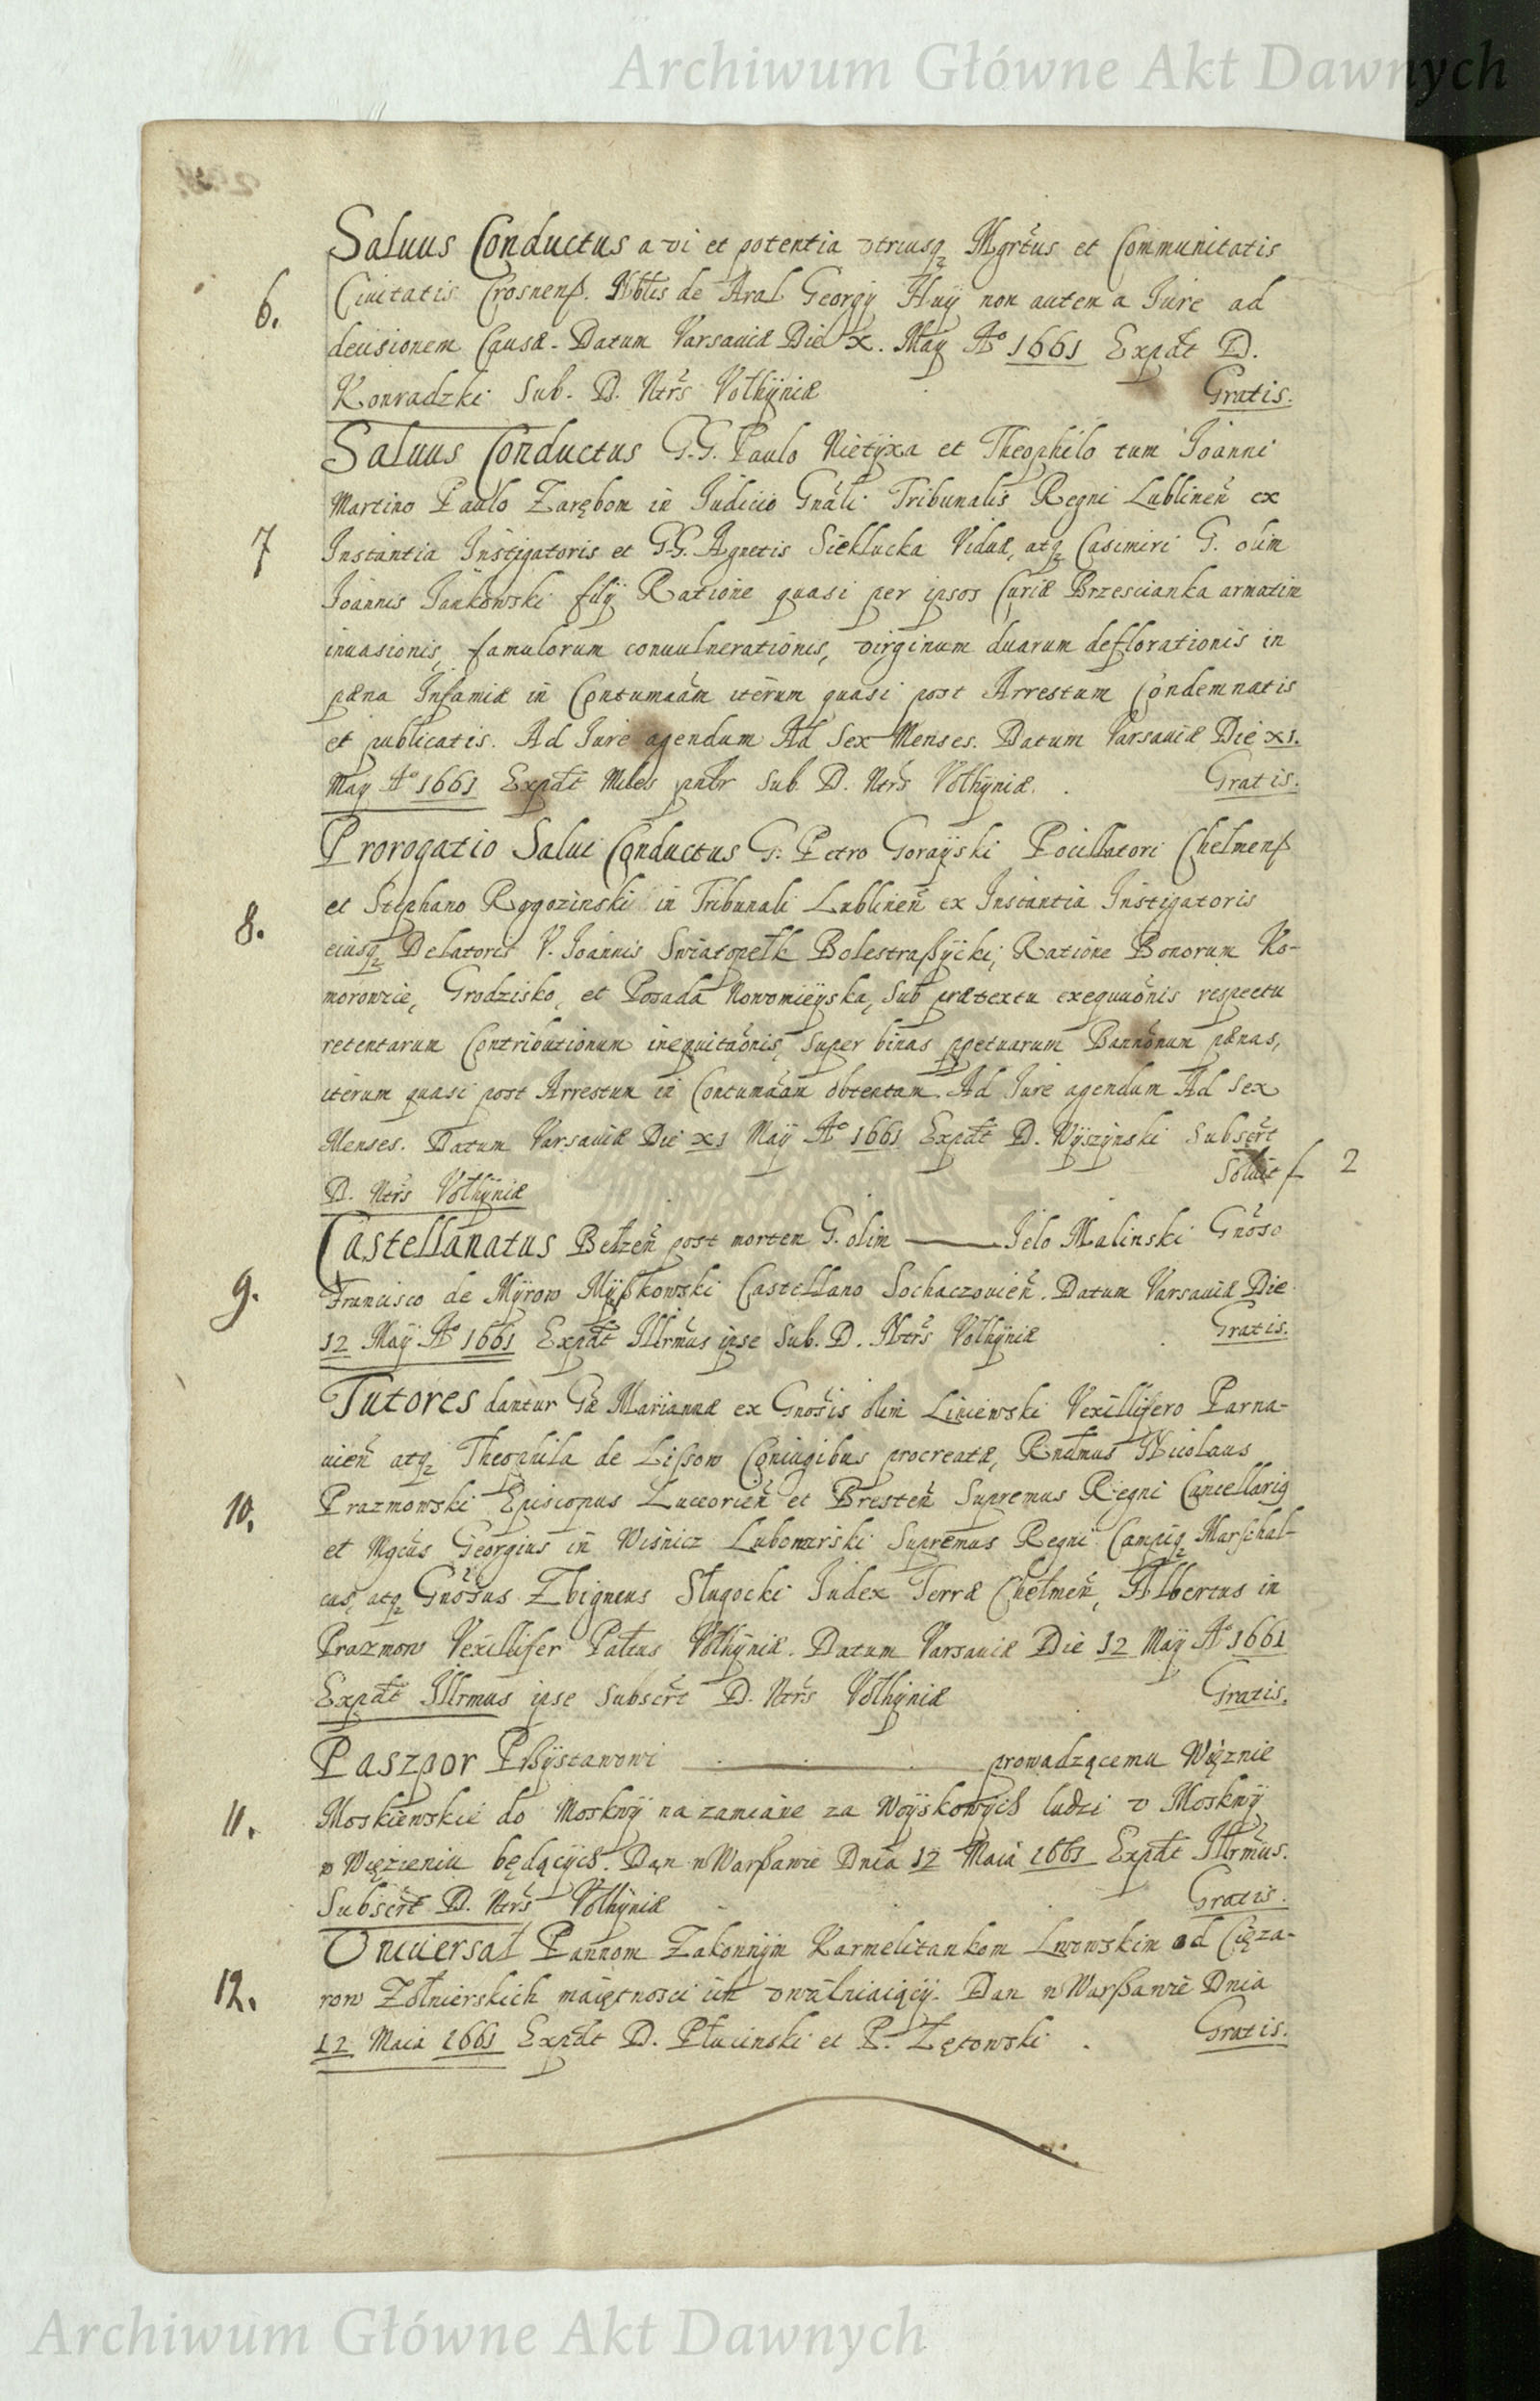 Archiwum Główne Akt Dawnych
Saluus Conductus a vi et potentia vtriusq Mgrtus et Communitatis
6. Ciuitatis Crosnenß. Nblis de Aral Georgÿ Huÿ non autem a Iure ad
decisionem Causæ. Datum Varsauiæ Die x. Maÿ Aº 1661 Expdt D.
Konradzki Sub. D. Ntrs Vołhÿniæ Gratis.
Saluus Conductus G.G. Paulo Nietÿxa et Theophilo tum Ioanni
Martino Paulo Zarębom in Iudicio Gnāli Tribunalis Regni Lublineñ ex
7 Instantia Instigatoris et G.G. Agnetis Sieklucka Viduæ, atq Casimiri G. olim
Ioannis Iankowski filÿ Ratione quasi per ipsos Curiæ Brzescianka armatim
inuasionis, famulorum conuulnerationis, virginum duarum deflorationis in
pæna Infamiæ in Contumaām iterum quasi post Arrestum Condemnatis
et publicatis. Ad Iure agendum Ad Sex Menses. Datum Varsauiæ Die xi.
Maÿ Aº 1661 Expdt Miles pntr Sub. D. Ntrs Vołhÿniæ. Gratis.
Prorogatio Salui Conductus G. Petro Goraÿski Pocillatori Chelmenß
et Stephano Rogozinski in Tribunali Lublineñ ex Instantia Instigatoris
8. eiusq Delatoris V. Ioannis Swiatopełk Bolestraßÿcki, Ratione Bonorum Ko-
morowie, Grodzisko, et Posada Nowomieÿska, Sub prætextu exequuōnis respectu
retentarum Contributionum inequitaōnis, super binas ppetuarum Bannōnum pænas,
iterum quasi post Arrestum in Contumaām obtentam. Ad Iure agendum Ad Sex
Menses. Datum Varsauiæ Die xi Maÿ Aº 1661 Expdt D. Wÿszÿnski Subscrt
D. Ntrs Vołhÿniæ Soluit f 2
Castellanatus Bełzeñ post mortem G. olim —— Ielo Malinski Gnōso
9. Francisco de Mÿrow Mÿßkowski Castellano Sochaczouieñ. Datum Varsauiæ Die
12 Maÿ Aº 1661 Expdt Illrmus ipse Sub. D. Ntrs Vołhÿniæ Gratis.
Tutores dantur Gæ Mariannæ ex Gnosis olim Liniewski Vexillifero Parna-
uieñ atq Theophila de Lissow Coniugibus procreatæ, Rndmus Nicolaus
10. Prazmowski Episcopus Luceorieñ et Bresteñ Supremus Regni Cancellarig
et Mgcus Georgius in Wisnicz Lubomirski Supremus Regni Campiq Marschal-
cus, atq Gnosus Zbigneus Sługocki Iudex Terræ Chełmeñ, Albertus in
Prazmow Vexillifer Pałtus Vołhÿniæ. Datum Varsauiæ Die 12 Maÿ Aº 1661
Expdt Illrmus ipse Subscrt D. Ntrs Vołhÿniæ Gratis.
Paszpor Prßÿstawowi —— prowadzącemu Więznie
11. Moskiewskie do Moskwÿ na zamiane za Woÿskowÿch ludzi v Moskwÿ
w Więzieniu będącÿch. Dan w Warßawie Dnia 12 Maia 1661 Expdt Illrmus.
Subscrt D. Ntrs Vołhÿniæ Gratis.
Vniuersał Pannom Zakonnÿm Karmelitankom Lwowskim od Cięza-
12. row Zołnierskich maiętnosci ich vwalniaiącÿ. Dan w Warßawie Dnia
12 Maia 1661 Expdt D. Płucinski et P. Łętowski. Gratis.
Archiwum Główne Akt Dawnych